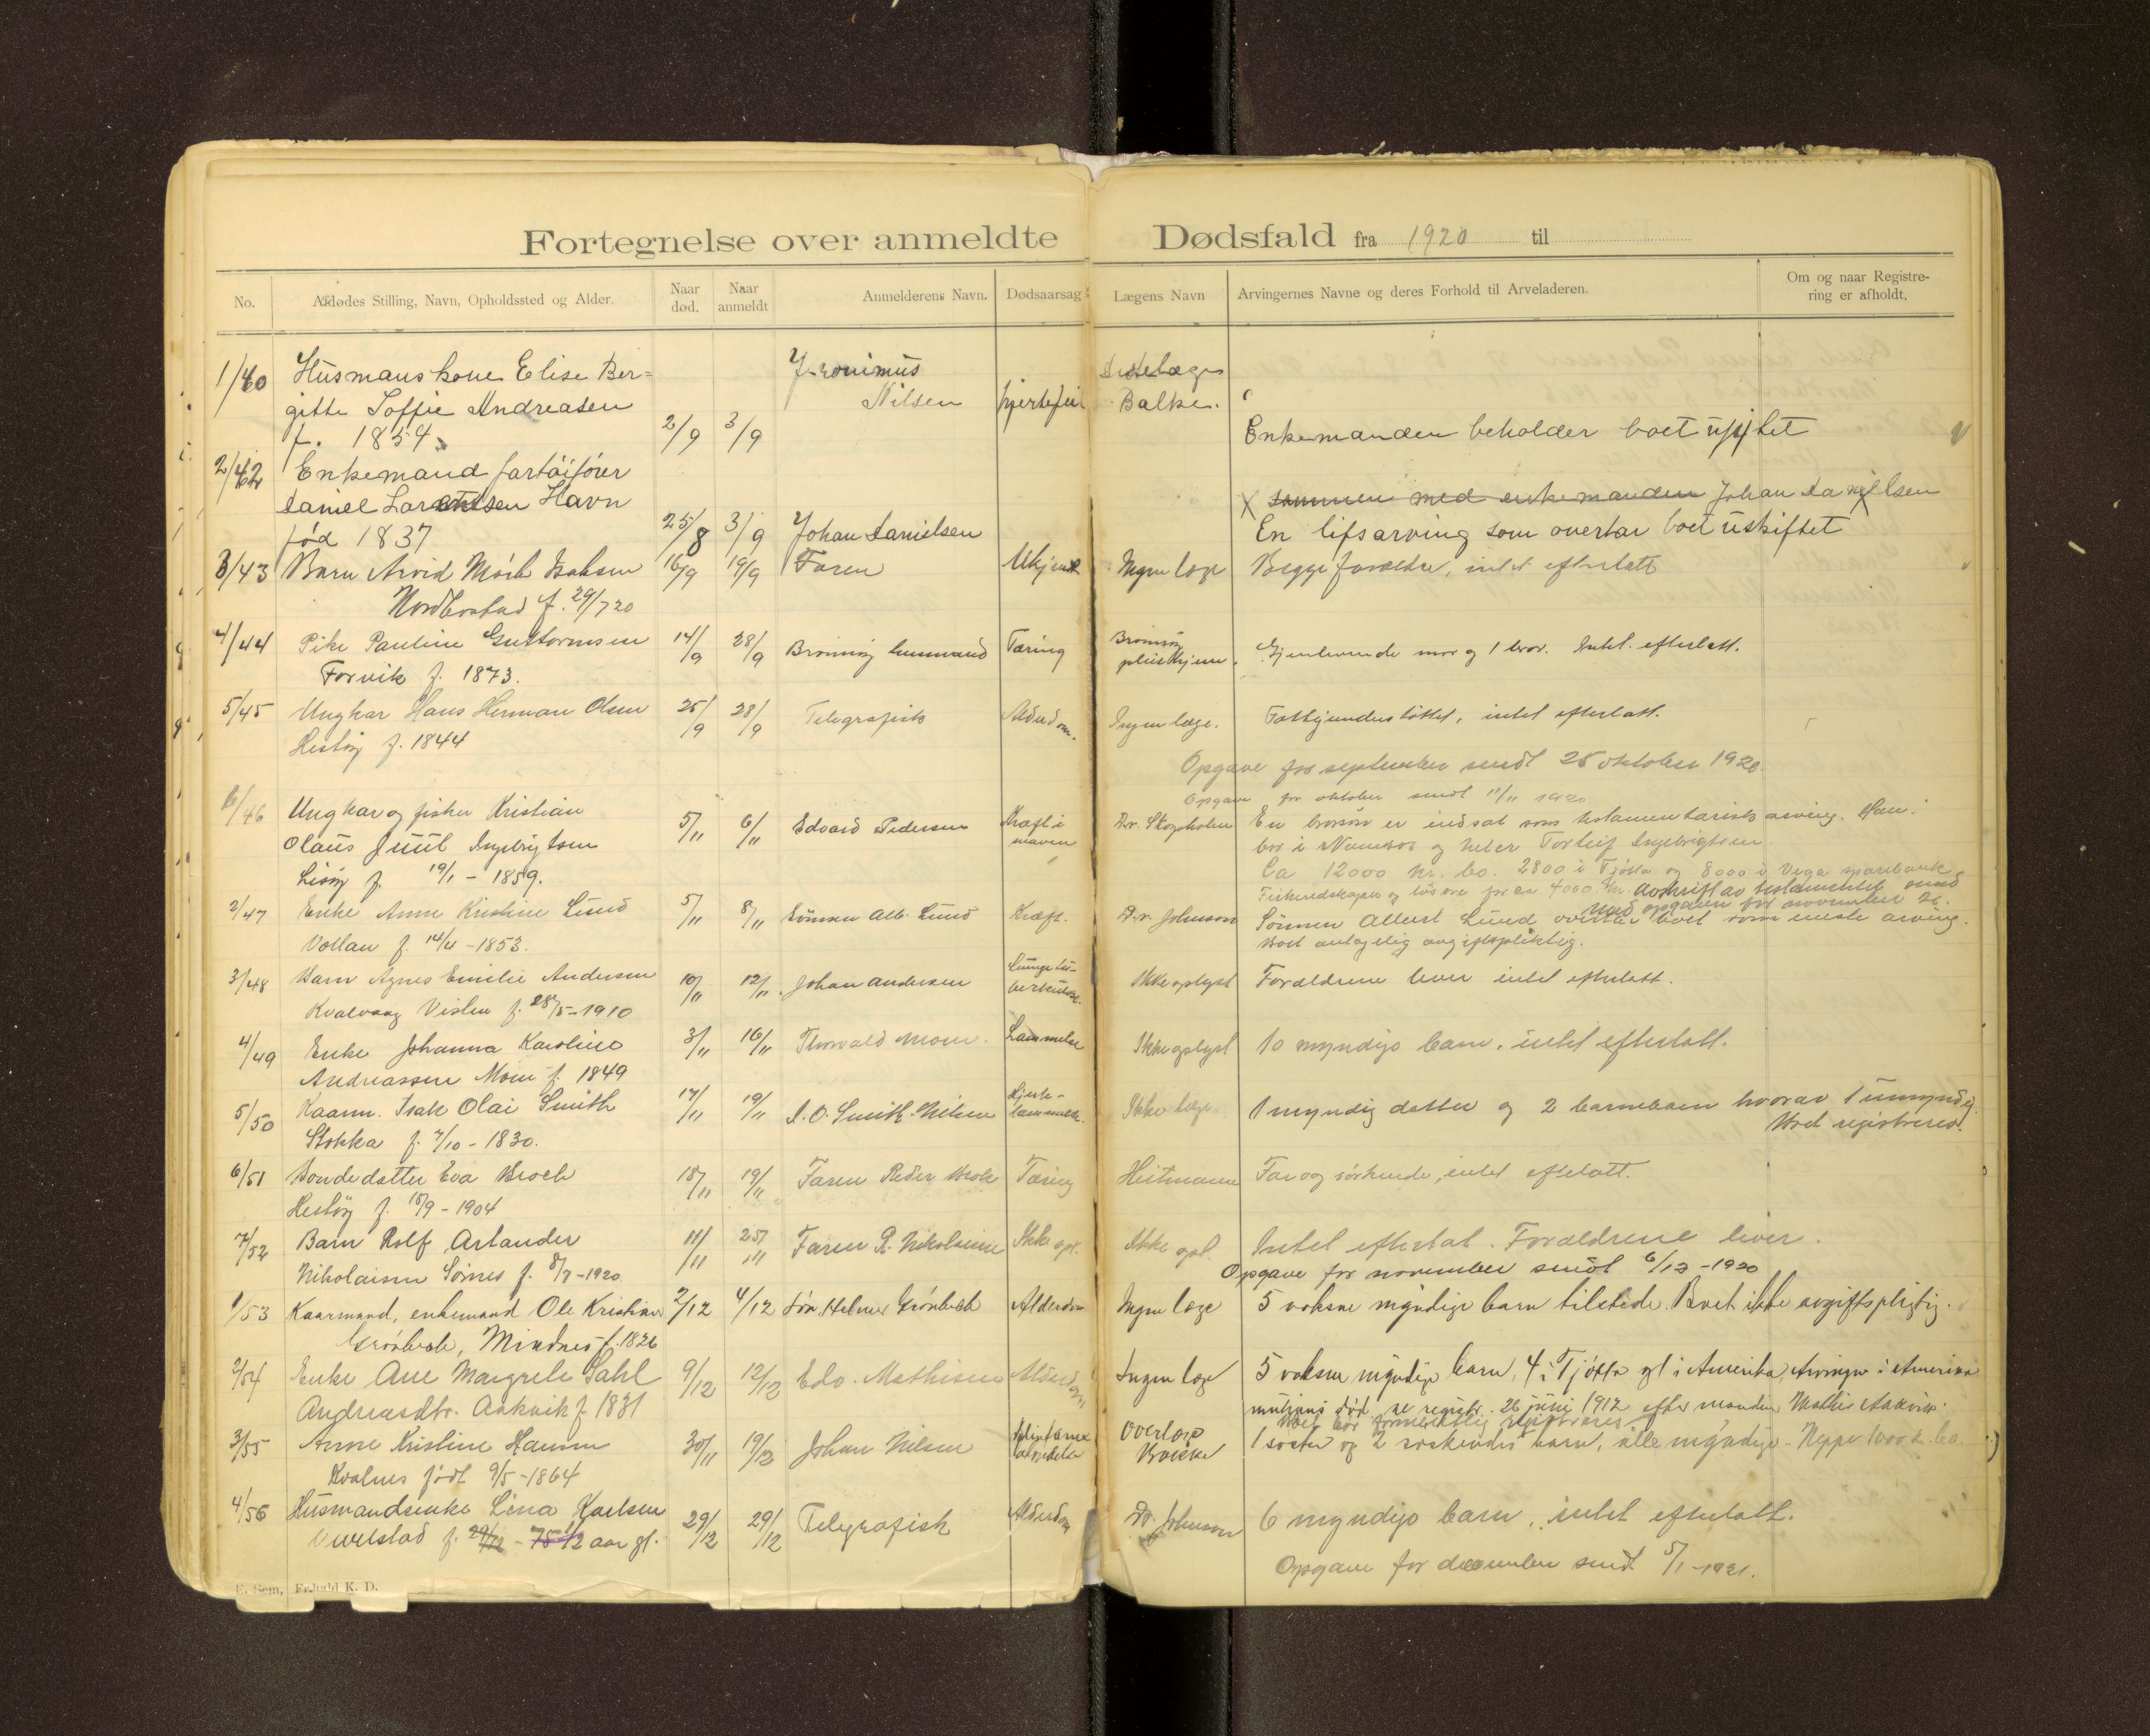 Fortegnelse over anmeldte Dødsfald fra 1920 til
No. Afdødes Stilling, Navn, Opholdssted og Alder. Naar død. Naar anmeldt Anmelderens Navn. Dødsaarsag Lægens Navn Arvingernes Navne og deres Forhold til Arveladeren. Om og naar Registrering er afholdt.
Husmanskone Elise Ber=
gitte Soffie Andreasen
f. 1834 2/9 3/9 Nilsen Balke.
Enkemanden beholder boet
Enkemand fartöiförer
Daniel Havn
född 1837 25/8 3/9 Johan Danielsen
sammen med enkemanden Johan Danielsen
En lifsarving som overtar boet uskiftet
3/43 Barn Arvid Mörk Isaksen 16/9 19/9 Faren Ukjent Ingen læge Begge forældre, intet efterlatt
f. 29/7 20
4/44 Pike Pauline Guttormsen 14/9 28/9 Tæring Gjenlevende mor og 1 bror. Intet efterlatt.
Forvik f. 1873.
5/45 Ungkar Hans Herman Olsen 25/9 28/9 Telegrafisk Alderdom. Ingen læge. intet efterlatt.
Hestöy f. 1844
Opgave for september sendt 25 oktober 1920
Opgave for oktober sendt 11/11 1920
6/46 Ungkar og fisker Kristian 5/11 6/11 Edvard Pedersen Kræft i maven En er indsat som testamentarisk arving. Han
Olaus Juul Ingebrigtsen bor i Namsos og heter Torleif Ingebrigtsen
f. 19/1 - 1859. Ca 12000 kr. bo. 2800 i Tjötta og 8000 i Vega sparebank
for ca 4000 kr. Avskrift av testamentet send
med opgaven for november 20.
2/47 Enke Anne Kristine Lund 5/11 8/11 Sönnen Alb. Lund Kræft. Dr. Johnson Sönnen Albert Lund overtar boet som eneste arving.
Vollan f. 14/4 - 1853. Boet antagelig avgiftspliktig.
3/48 Barn Agnes Emilie Andersen 10/11 12/11 Johan Andersen Lungetuberkulose. Ikke oplyst Forældrene lever intet efterlatt.
Kvalvaag Visten f. 28/5 - 1910
4/49 Enke Johanna Karoline 3/11 16/11 Thorvald Moen. Lammelse Ikke oplyst 10 myndige barn, intet efterlatt.
Andreassen Moen f. 1849
5/50 Kaarm. Isak Olai Smith 17/11 19/11 I. O. Smith-Nilsen Hjertelammelse. Ikke læge. 1 myndig datter og 2 barnebarn hvorav 1 umyndig.
Stokka f. 7/10 - 1830. Boet registreres.
6/51 Bondedatter Eva Broch 18/11 19/11 Faren Peder Tæring Heitmann Far og söskende, intet efterlatt.
Hestöy f. 18/9 - 1904
7/52 Barn Rolf Arlander 11/11 25/11 Faren R. Nikolaisen Ikke opl. Ikke opl. Intet efterlat. Forældrene lever.
Nikolaisen Sörnes f. 8/7 - 1920 Opgave for november sendt 6/12 - 1920
1/53 Kaarmand, enkemand Ole Kristian 2/12 4/12 Sön Helmer Grönbech Alderdom Ingen læge 5 voksne myndige barn tilstede. Boet ikke avgiftspligtig.
Grönbech, Mindnes f. 1826
2/54 Enke Ane Margrete Dahl 9/12 12/12 Edv. Mathisen Alderdom Ingen læge 5 voksne myndige barn, 4 i Tjötta og 1 i Amerika, Arvingen i Amerika
Andreasdtr. Aakvik f. 1831 död se registr. 26 juni 1912 efter manden Mathis Aakvik.
3/55 Anne Kristine Hansen 30/11 19/12 Johan Nilsen Overlæge 1 söster og 2 söskendes barn, alle myndige - Neppe 1000 k. bo.
Kvalnes född 9/5 - 1864
4/56 Husmandsenke Lina Karlsen 29/12 29/12 Telegrafisk Alderdom Dr. Johnson 6 myndige barn, intet efterlatt.
f. 29/12 - 75 1/2 aar gl.
Opgave for december sendt 5/1 - 1921.